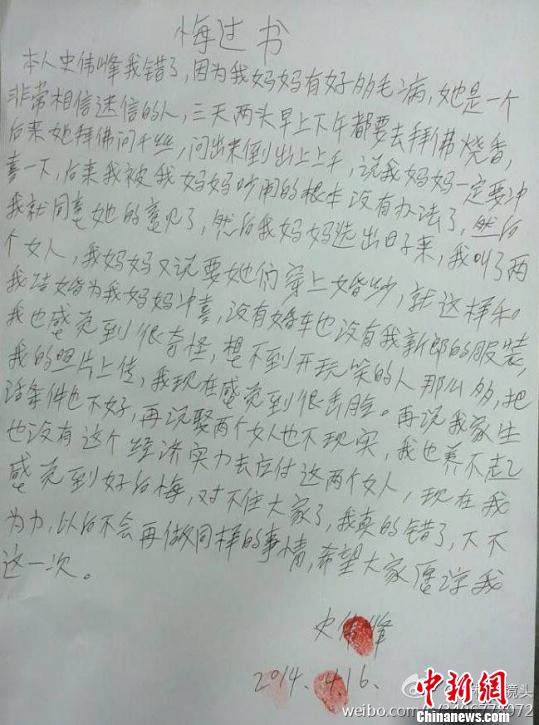 悔过书
本人史伟峰我错了,因为我妈妈有好多毛病,她是一个
非常相信迷信的人,三天两头早上下午都要去拜佛烧香,
后来她拜佛问千丝,问出来倒出上上千,说我妈妈一定要冲
喜一下,后来我被我妈妈吵闹的根本没有办法了,然后
我就同意她的意见了,然后我妈妈选出日子来,我叫了两
个女人,我妈妈又说要她们穿上婚纱,就这样和
我结婚为我妈妈冲喜,没有婚车也没有我新郎的服装,
我也感觉到很奇怪,想不到开玩笑的人那么多,把
我的照片上传,我现在感觉到很丢脸。再说我家生
活条件也不好,再说娶两个女人也不现实,我也养不起
也没有这个经济实力去应付这两个女人,现在我
感觉到好后悔,对不住大家了,我真的错了,下不
为力,以后不会再做同样的事情,希望大家愿谅我
这一次。
史伟峰
2014.4.16.
镜头
weibo.com/
中新网
chinanews.com